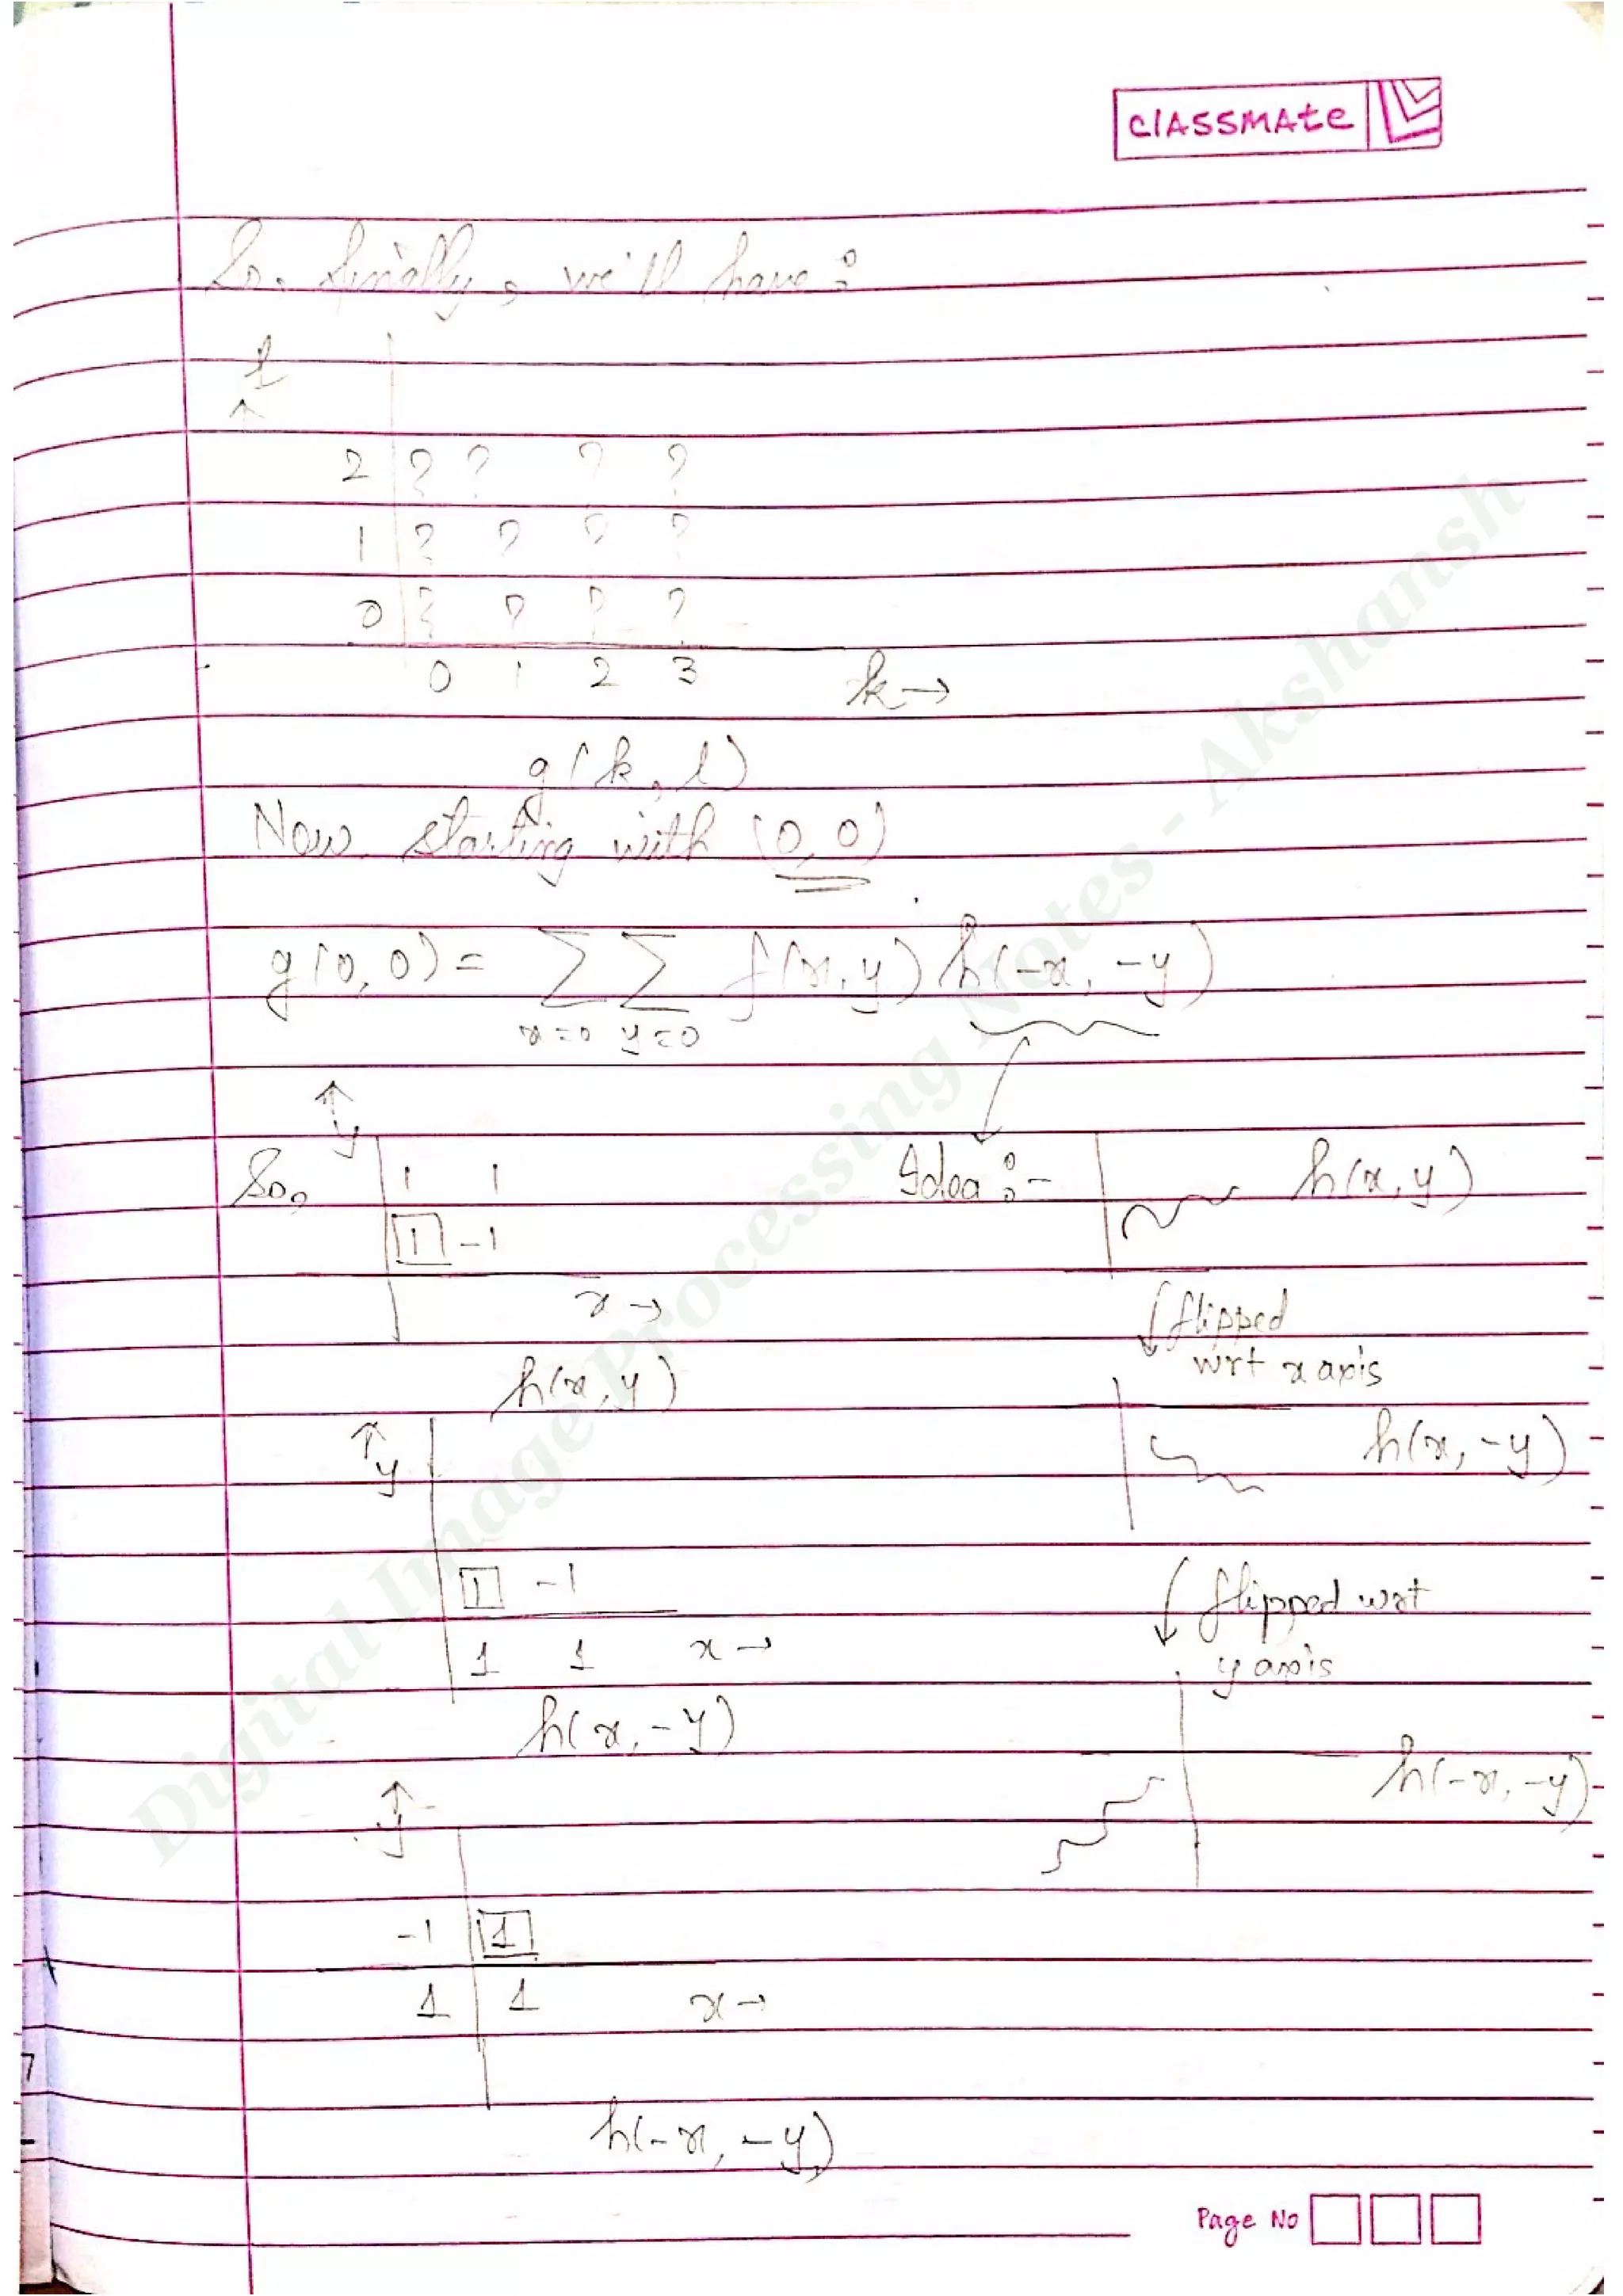 classmate
So, finally, we'll have:
l
↑
2 ? ? ? ?
1 ? ? ? ?
0 ? ? ? ?
0 1 2 3 k→
g(k,l)
Now starting with (0,0)
g(0,0) = ΣΣ f(x,y) h(-x,-y)
x=0 y=0
↑
y
So, 1 1
1 -1
x→
h(x,y)
↑
y
1 -1
1 1 x→
h(x,-y)
↑
y
-1 1
1 1 x→
h(-x,-y)
Idea:- h(x,y)
↓ flipped
wrt x axis
h(x,-y)
↓ flipped wrt
y axis
h(-x,-y)
Page No
Digital Image Processing Notes - Akshansh